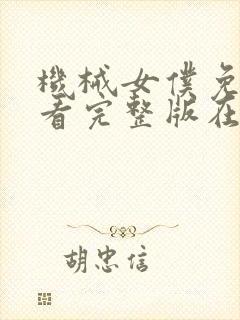 機械女僕免
看完整版在
胡忠信